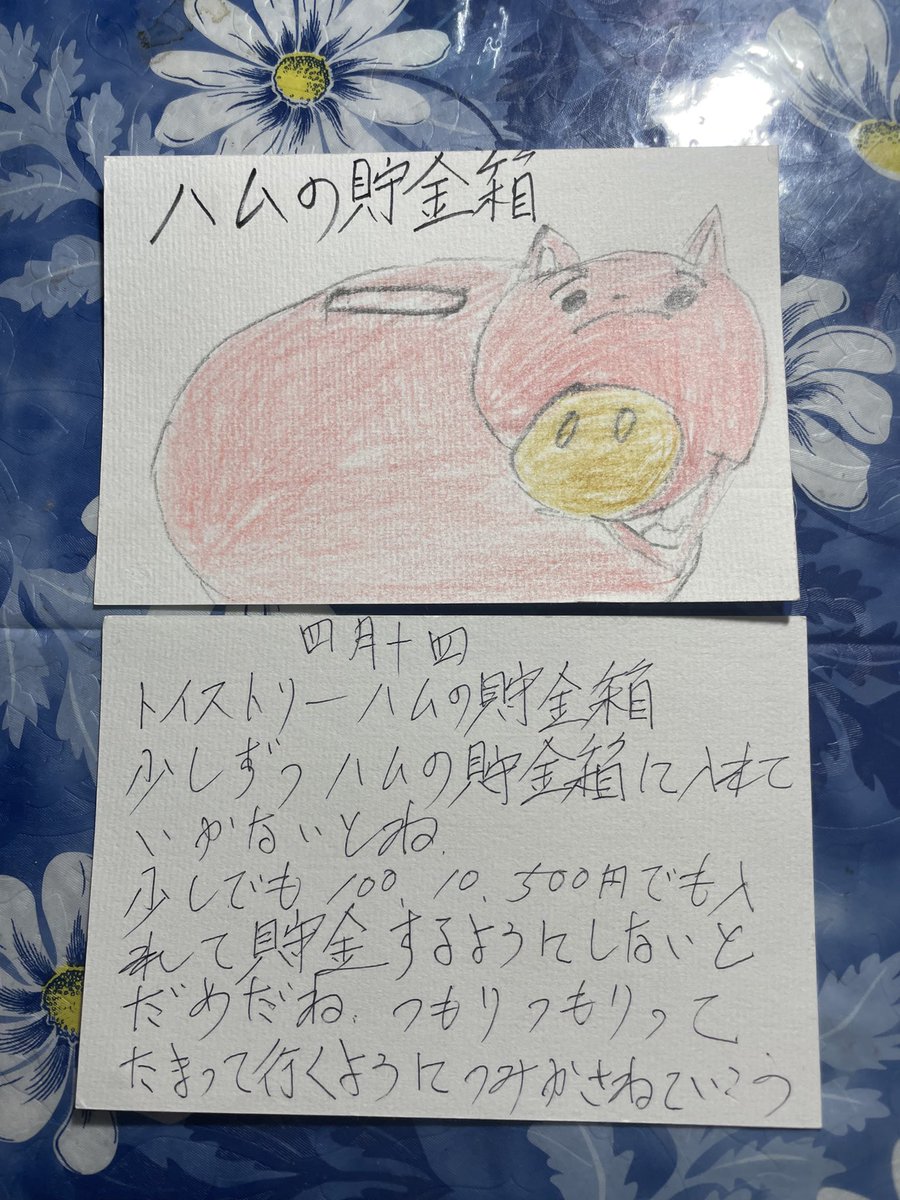 ハムの貯金箱
四月十四
トイストリーハムの貯金箱
少しずつハムの貯金箱に入れて
いかないとね.
少しでも100、10、500円でも入
れして貯金するようにしないと
だめだね、つもりつもりって
たまって行くようにつみかさねていこう